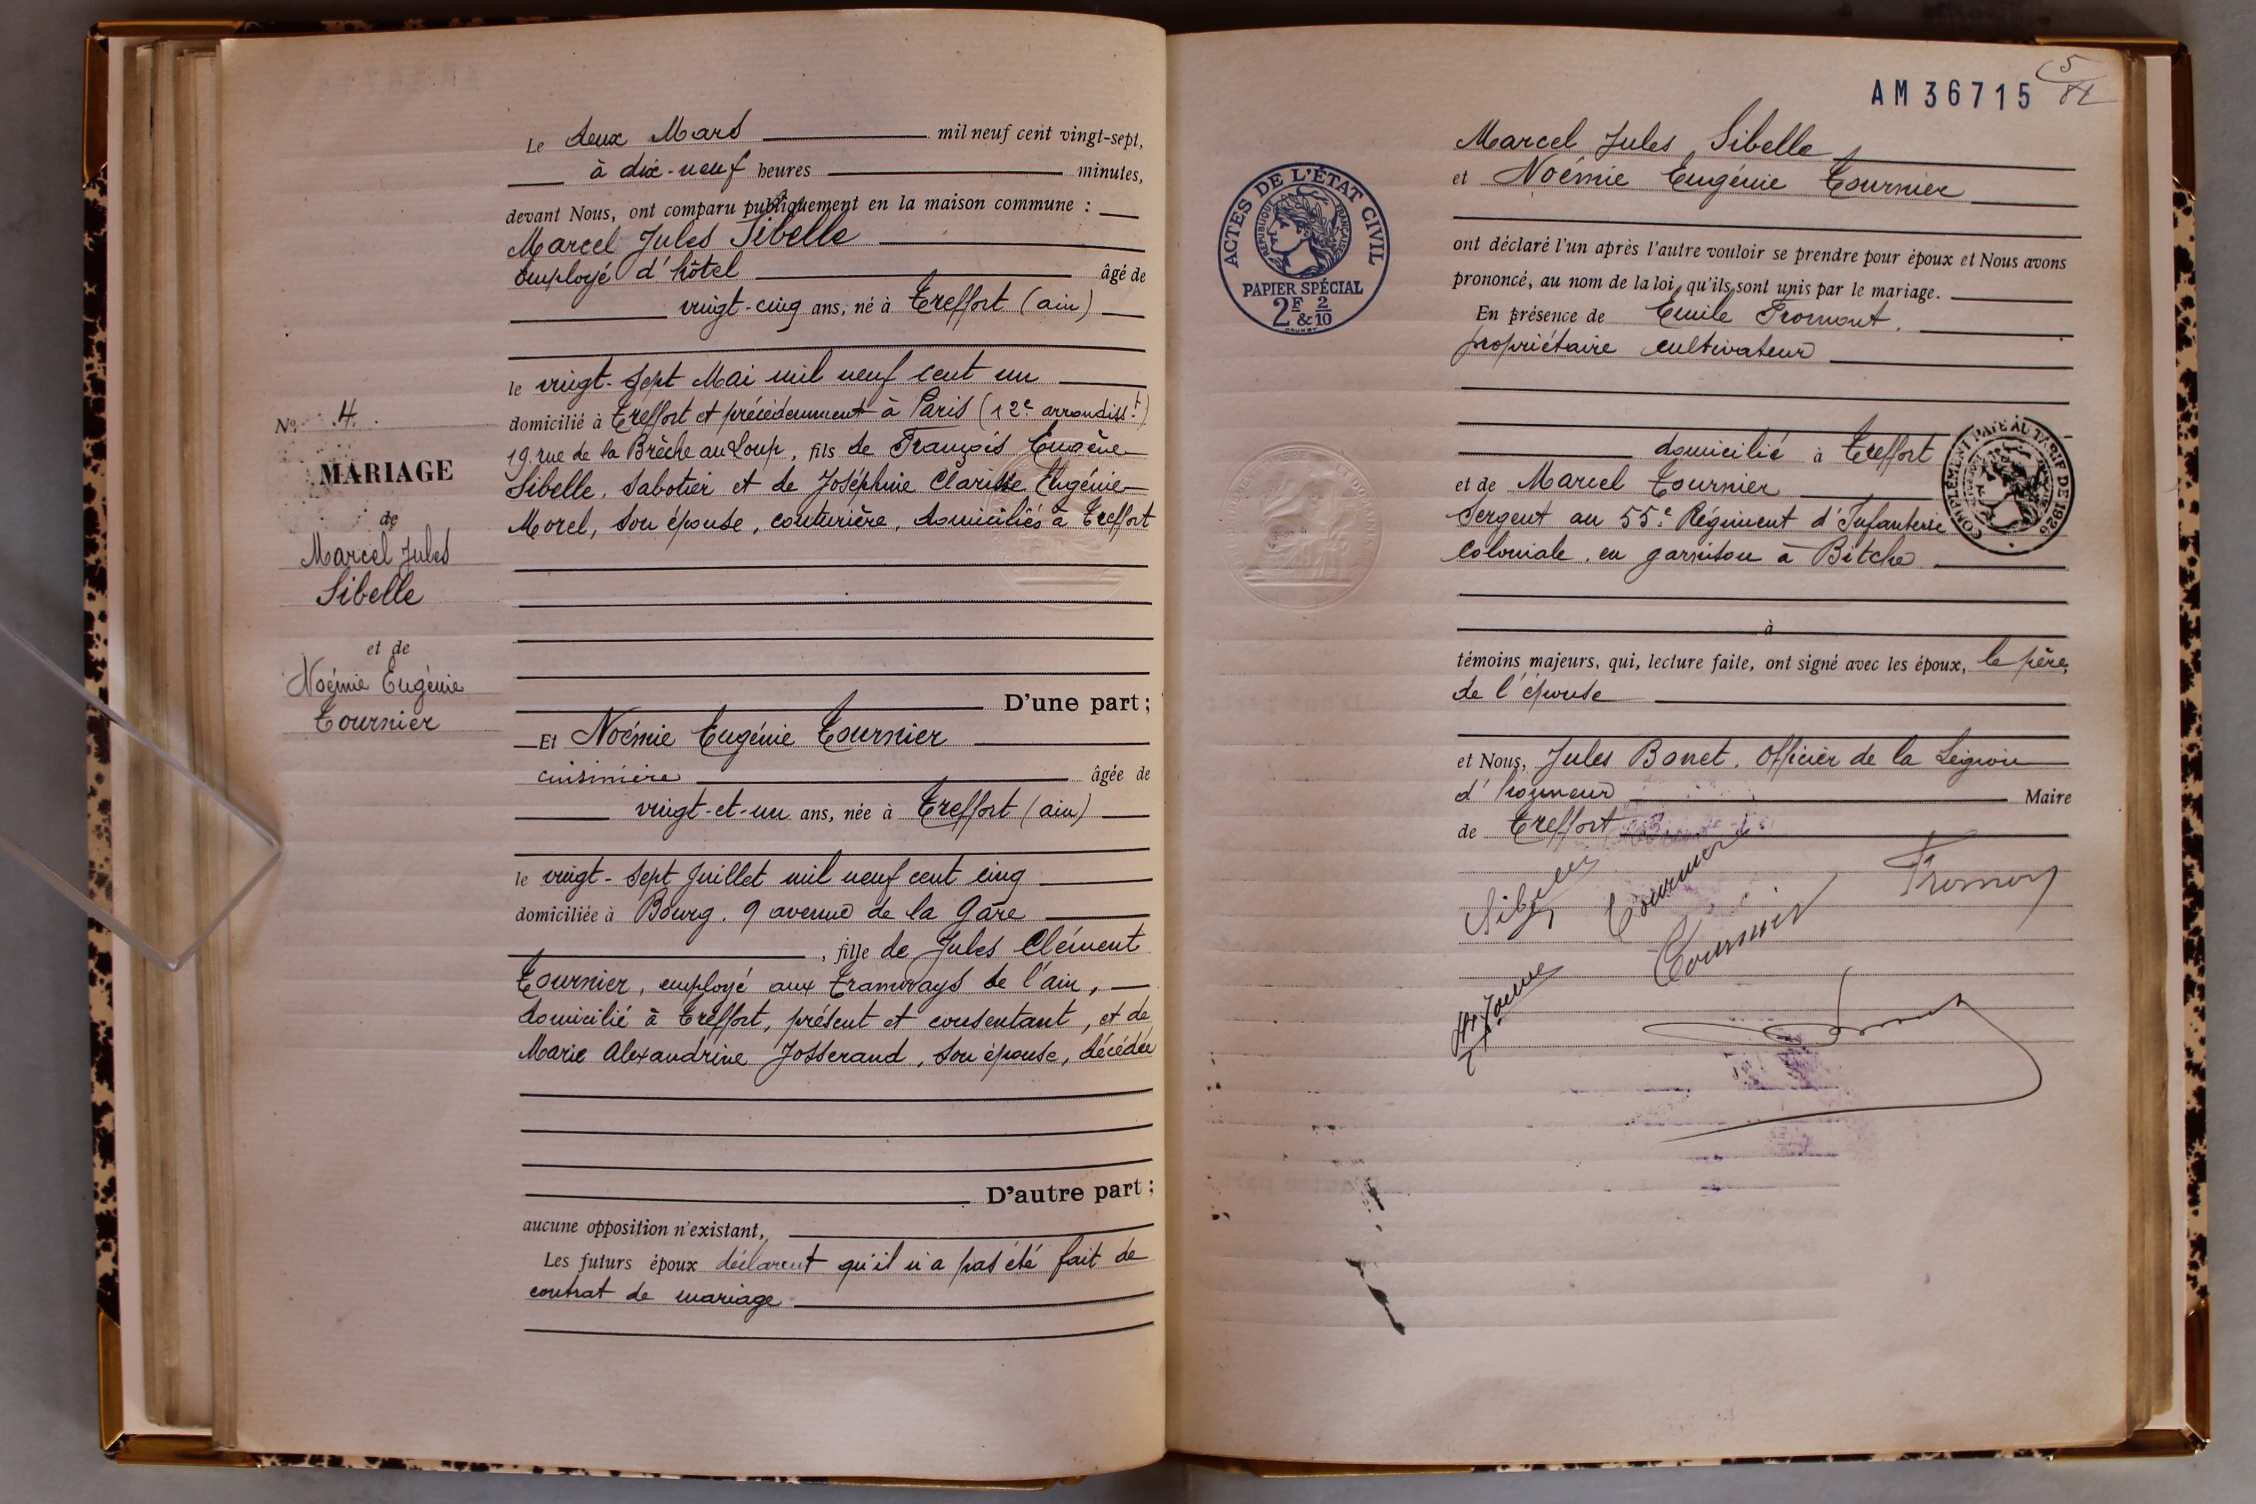 Le deux Mars mil neuf cent vingt-sept,
à dix-neuf heures minutes,
devant Nous, ont comparu publiquement en la maison commune :
Marcel Jules Sibelle
employé d'hôtel âgé de
vingt-cinq ans, né à Treffort (ain)
le vingt-sept Mai mil neuf cent un
domicilié à Treffort et précédemment à Paris (12e arrondisst)
19 rue de la Brèche au Loup, fils de François Eugène
Sibelle, Sabotier et de Joséphine Clarisse Eugénie
Morel, son épouse, couturière, domiciliés à Treffort
D'une part ;
Et Noémie Eugénie Tournier
cuisinière âgée de
vingt-et-un ans, née à Treffort (ain)
le vingt-sept Juillet mil neuf cent cinq
domiciliée à Bourg, 9 avenue de la Gare
, fille de Jules Clément
Tournier, employé aux Tramways de l'ain,
domicilié à Treffort, présent et consentant, et de
Marie Alexandrine Josserand, son épouse, décédée
D'autre part ;
aucune opposition n'existant,
Les futurs époux déclarent qu'il n'a pas été fait de
contrat de mariage
No 4.
MARIAGE
de
Marcel Jules
Sibelle
et de
Noémie Eugénie
Tournier
AM36715
5
ACTES DE L'ÉTAT CIVIL
RÉPUBLIQUE FRANÇAISE
PAPIER SPÉCIAL
2F & 2/10
Marcel Jules Sibelle
et Noémie Eugénie Tournier
ont déclaré l'un après l'autre vouloir se prendre pour époux et Nous avons
prononcé, au nom de la loi, qu'ils sont unis par le mariage.
En présence de Emile Fromont,
propriétaire cultivateur
domicilié à Treffort
COMPLÉMENT PAYÉ AU TARIF DE 1926
et de Marcel Tournier
Sergent au 55e Régiment d'Infanterie
Coloniale, en garnison à Bitche
à
témoins majeurs, qui, lecture faite, ont signé avec les époux, le père,
de l'épouse
et Nous, Jules Bonet, Officier de la Légion
d'honneur Maire
de Treffort
Sibelle
Tournier
Fromont
Tournier